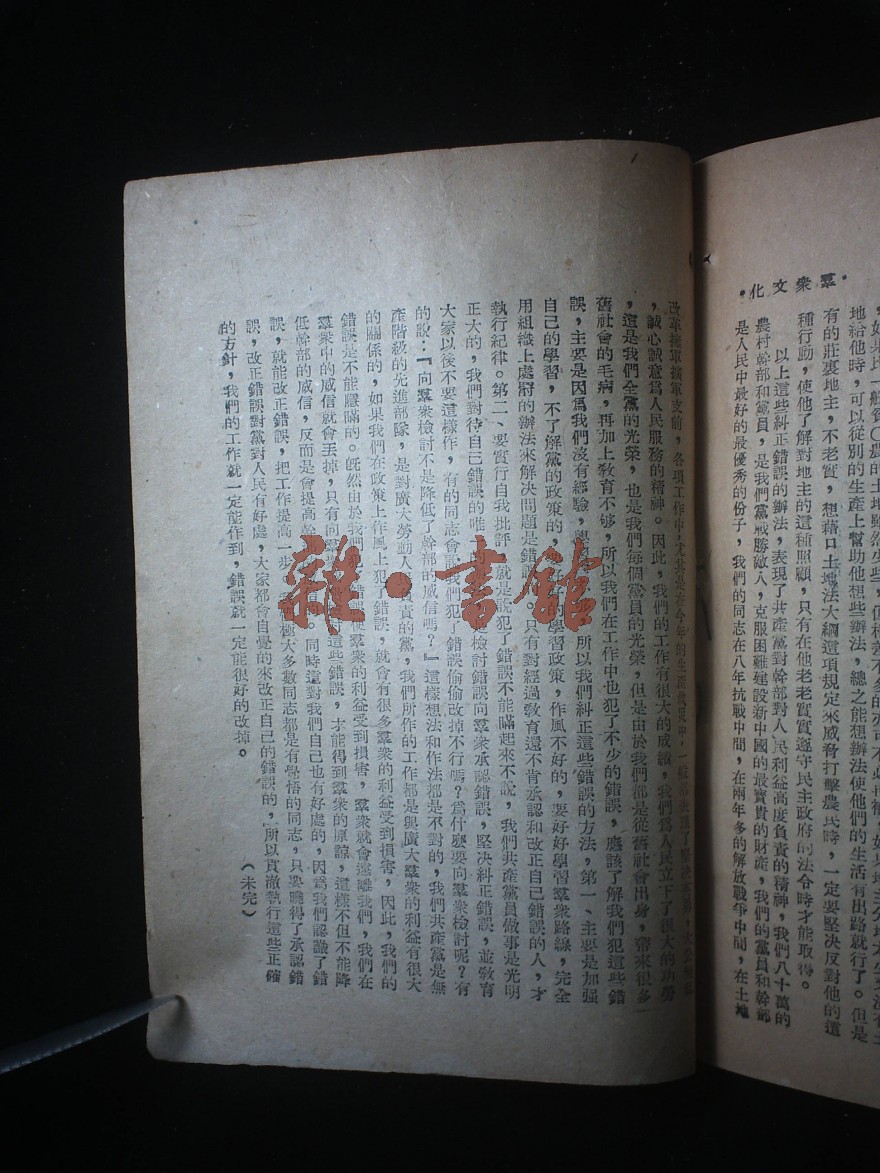 ·羣衆文化·
地給他時，可以從別的生產上幫助他想些辦法，總之能想辦法使他們的生活有出路就行了。但是
有的莊裏地主，不老實，想藉口土地法大綱這項規定來威脅打擊農民時，一定要堅決反對他的這
種行動，使他了解對地主的這種照顧，只有在他老老實實遵守民主政府的法令時才能取得。
以上這些糾正錯誤的辦法，表現了共產黨對幹部對人民利益高度負責的精神，我們八十萬的
農村幹部和黨員，是我們黨戰勝敵人，克服困難建設新中國的最寶貴的財產，我們的黨員和幹部
是人民中最好的最優秀的份子，我們的同志在八年抗戰中間，在兩年多的解放戰爭中間，在土地
改革擁軍擴軍支前，各項工作中，尤其是在今年的生產救災中，一般
，誠心誠意爲人民服務的精神。因此，我們的工作有很大的成績，我們爲人民立下了很大的功勞
，這是我們全黨的光榮，也是我們每個黨員的光榮，但是由於我們都是從舊社會出身，帶來很多
舊社會的毛病，再加上教育不够，所以我們在工作中也犯了不少的錯誤，應該了解我們犯這些錯
誤，主要是因爲我們沒有經驗，學 所以我們糾正這些錯誤的方法，第一、主要是加强
自己的學習，不了解黨的政策的， 的學習政策，作風不好的，要好好學習羣衆路線，完全
用組織上處罰的辦法來解決問題是錯 只有對經過教育還不肯承認和改正自己錯誤的人，才
執行紀律。第二、要實行自我批評 就是 犯了錯誤不能瞞起來不說，我們共產黨員做事是光明
正大的，我們對待自己錯誤的唯 是檢討錯誤向羣衆承認錯誤，堅决糾正錯誤，並教育
大家以後不要這樣作，有的同志會說 我們犯了錯誤偷偷改掉不行嗎？爲什麼要向羣衆檢討呢？有
的說：『向羣衆檢討不是降低了幹部的威信嗎？』這樣想法和作法都是不對的，我們共產黨是無
產階級的先進部隊，是對廣大勞動人 責的黨，我們所作的工作都是與廣大羣衆的利益有很大
的關係的，如果我們在政策上作風上犯了錯誤，就會有很多羣衆的利益受到損害，因此，我們的
錯誤是不能隱瞞的。旣然由於我們犯 錯誤使羣衆的利益受到損害，羣衆就會遠離我們，我們在
羣衆中的威信就會丟掉，只有向羣 討這些錯誤，才能得到羣衆的原諒，這樣不但不能降
低幹部的威信，反而是會提高幹 信的。同時這對我們自己也有好處的，因爲我們認識了錯
誤，就能改正錯誤，把工作提高一步， 極大多數同志都是有覺悟的同志，只要曉得了承認錯
誤，改正錯誤對黨對人民有好處，大家都會自覺的來改正自己的錯誤的，所以貫澈執行這些正確
的方針，我們的工作就一定能作到，錯誤就一定能很好的改掉。
（未完）
雜·書館